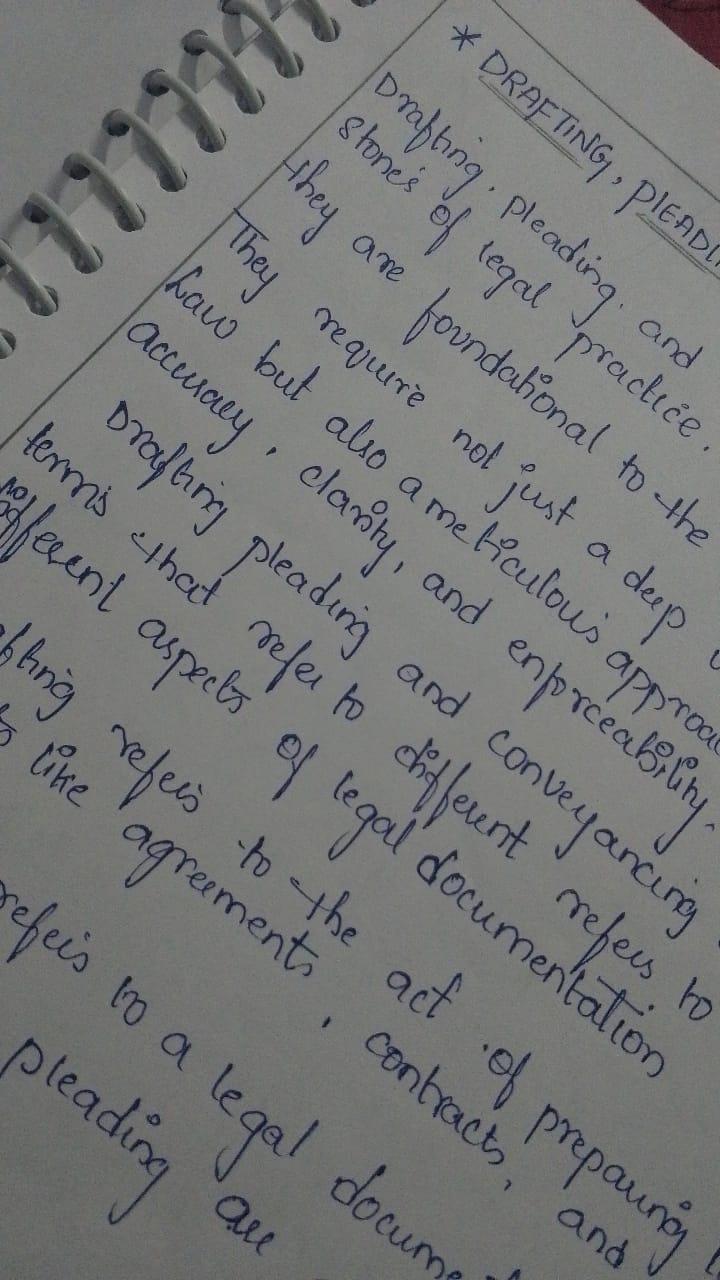 * DRAFTING, PLEADI
Drafting, pleading, and
stones of legal practice.
they are foundational to the
They require not just a deep
Law but also a meticulous approa
accuracy, clarity, and enforceability.
Drafting pleading and conveyancing
terms that refer to different refers to
different aspects of legal documentation
refers to the act of preparing
like agreements, contracts, and
refers to a legal docume
pleading are